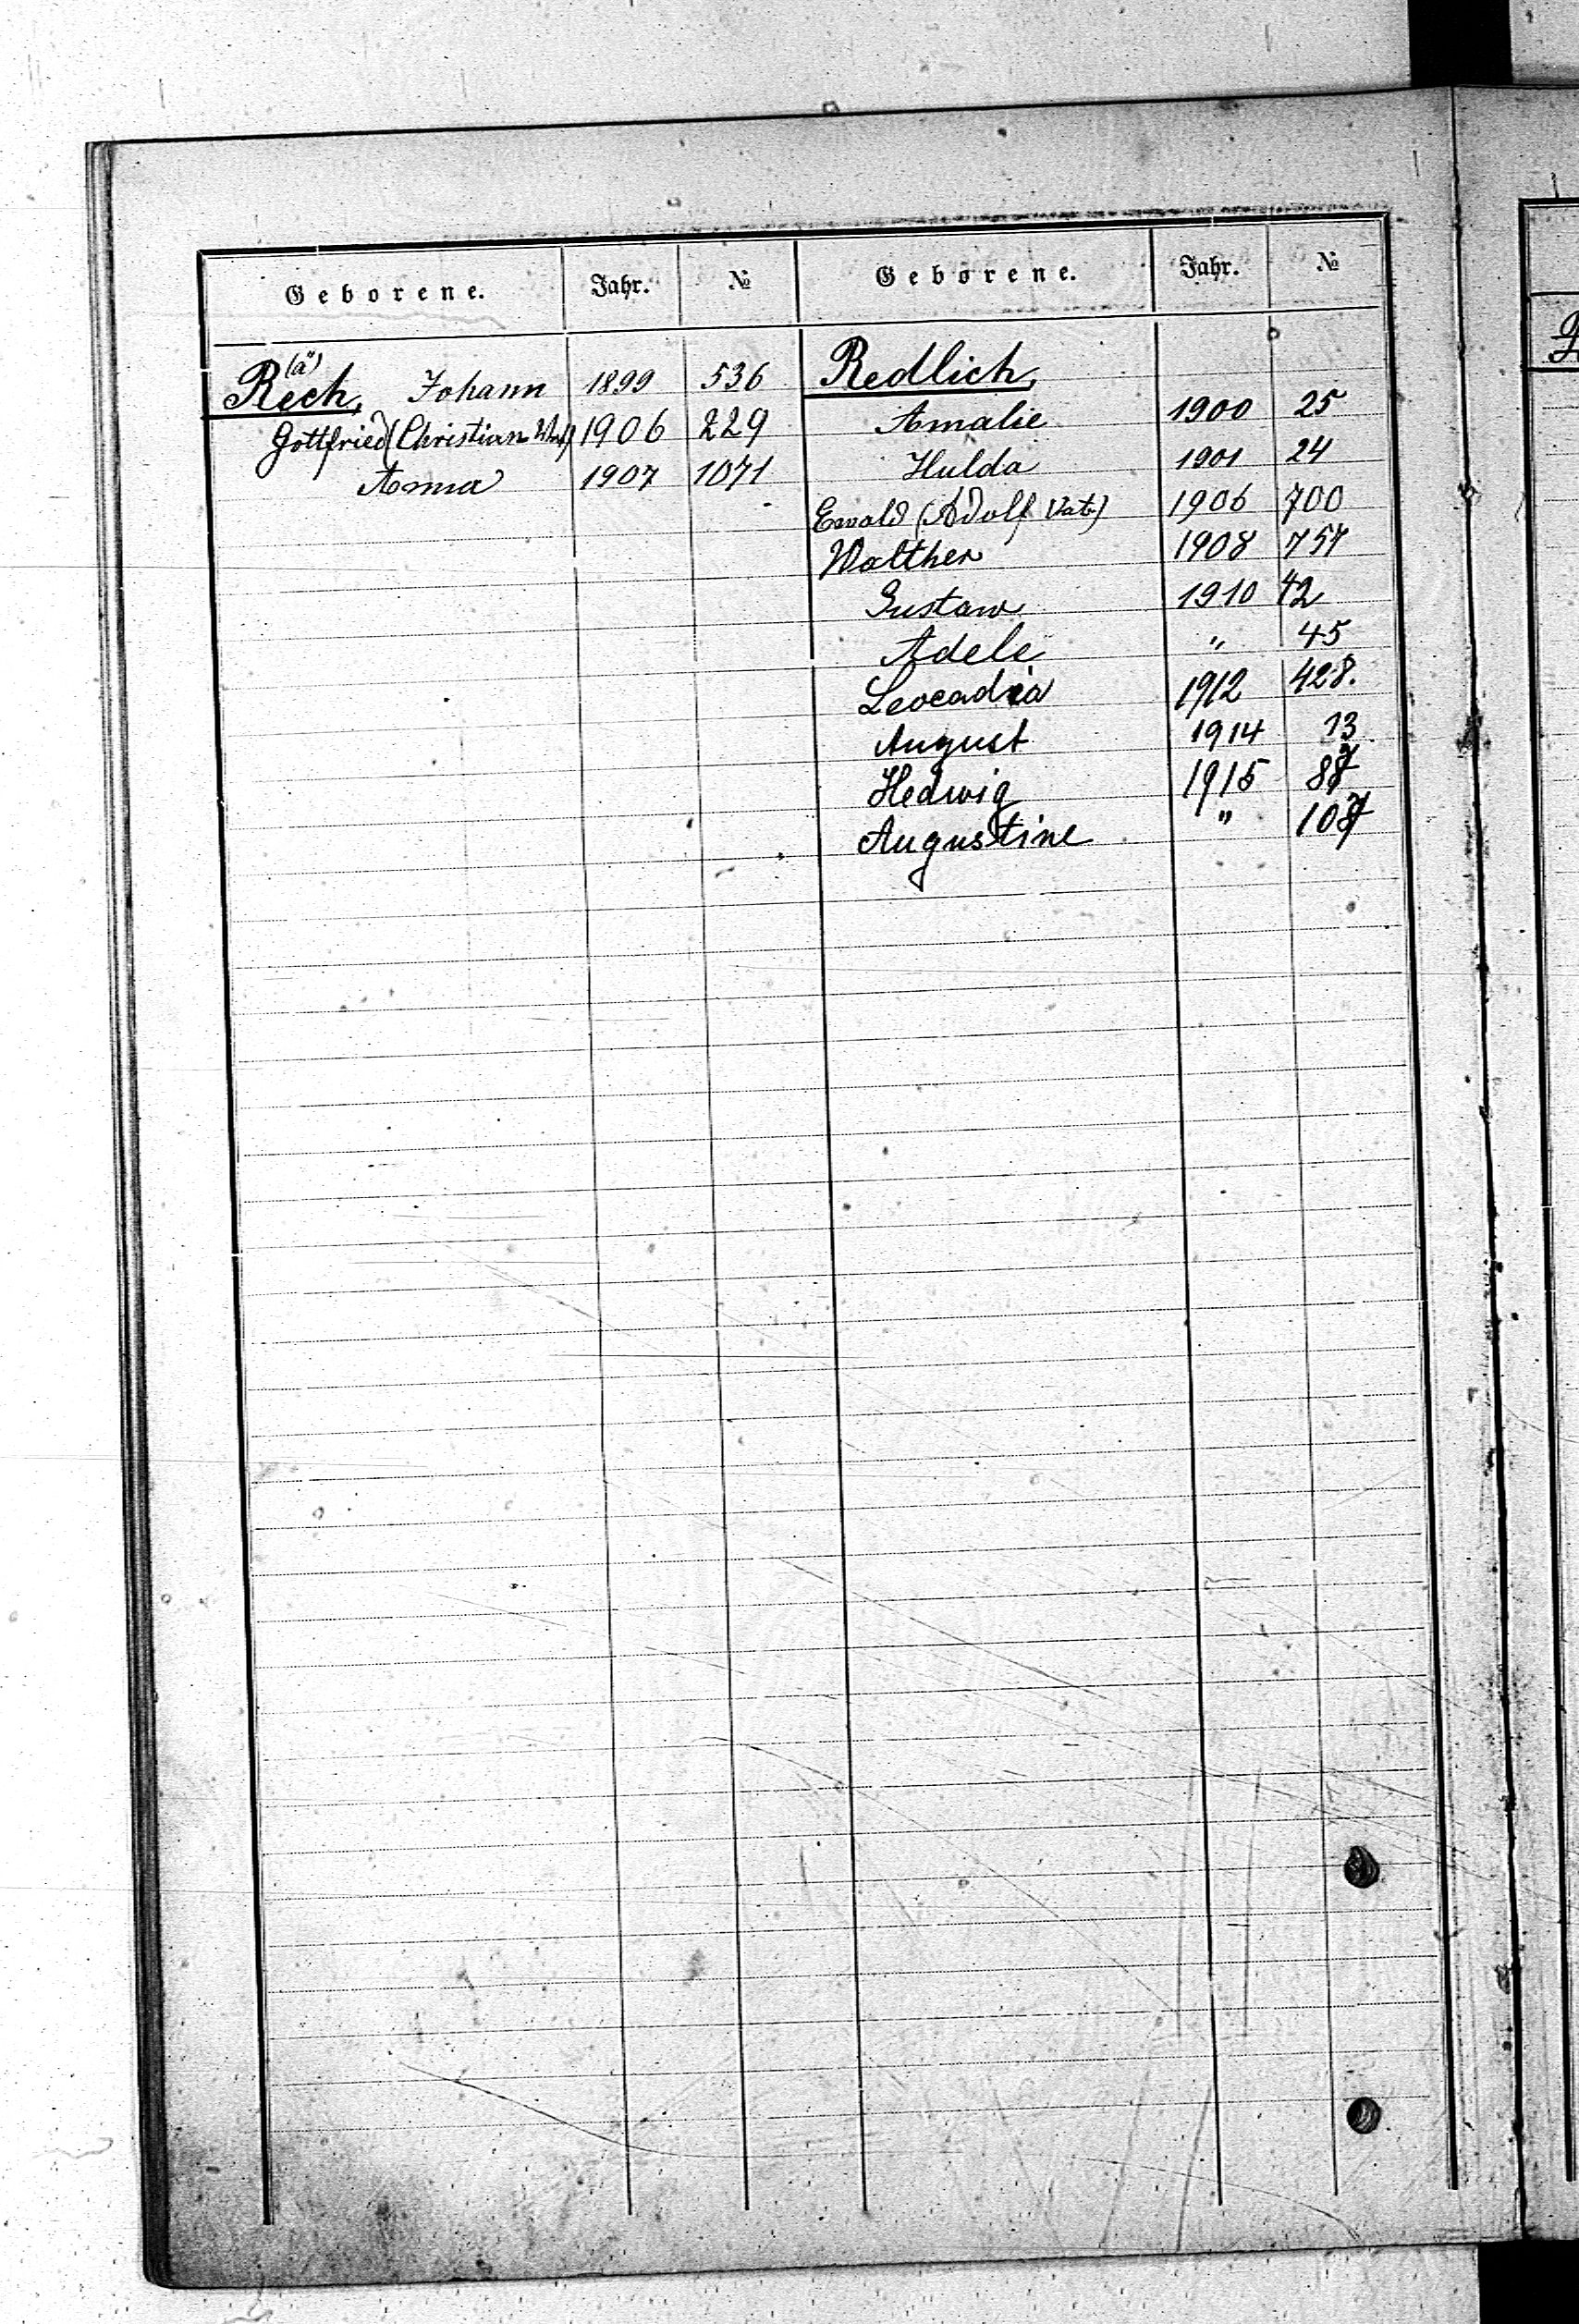 Geborene. Jahr. №
(ä)
Rech, Johann 1899 536
Gottfried (Christian 1906 229
Anna 1907 1071
Geborene. Jahr. №
Redlich,
Amalie 1900 25
Hulda 1901 24
Ewald (Adolf Vater) 1906 700
Walther 1908 757
Gustaw 1910 42
Adele " 45
Leocadia 1912 428.
August 1914 13
Hedwig 1915 87
Augustine " 107